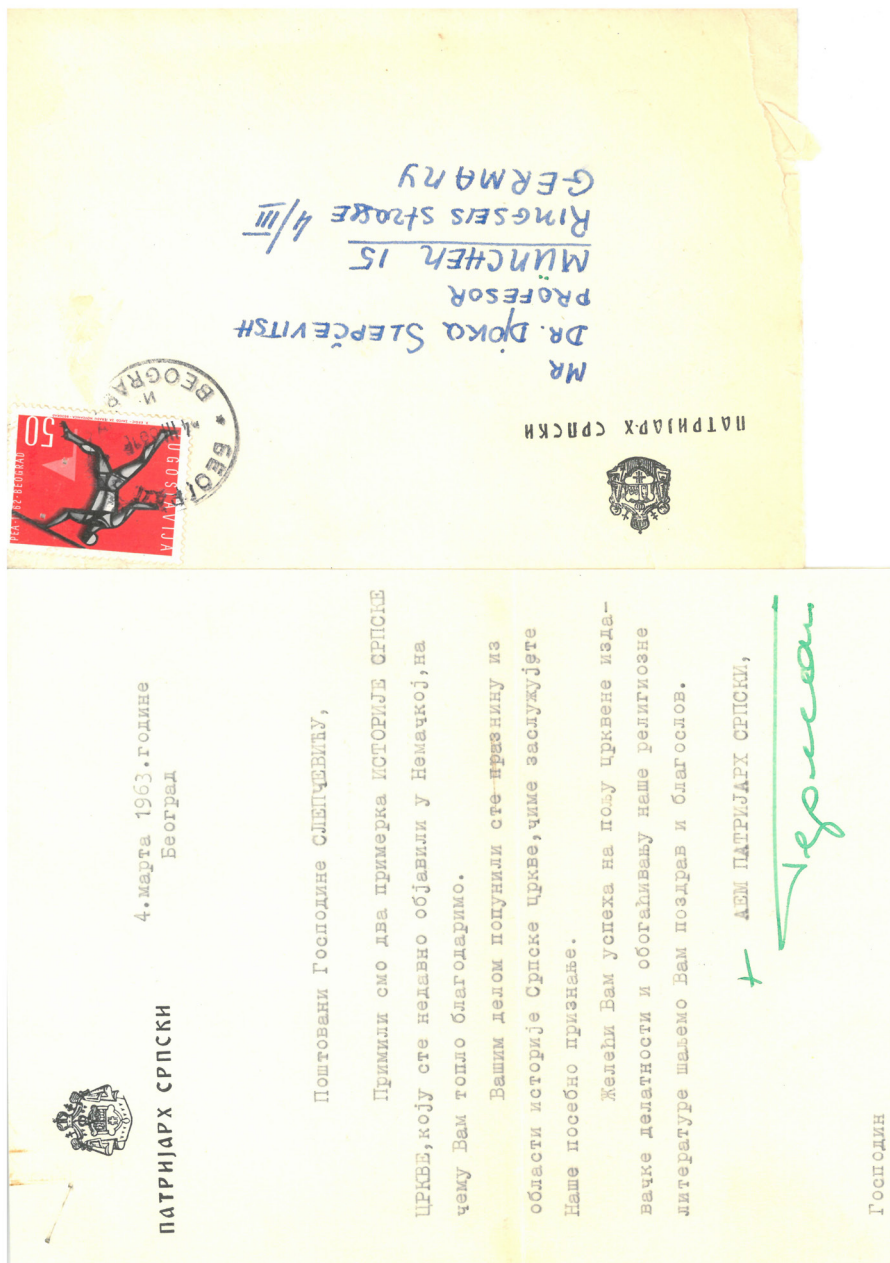 ПАТРИЈАРХ СРПСКИ
MR
DR. DJOKO SLEPČEVITSH
PROFESOR
MÜNCHEN 15
RINGSEIS straße 4/III
GERMANY
50
JUGOSLAVIJA
BEOGRAD
ПАТРИЈАРХ СРПСКИ
4.марта 1963.године
Београд
Поштовани Господине СЛЕПЧЕВИЋУ,
Примили смо два примерка ИСТОРИЈЕ СРПСКЕ
ЦРКВЕ,коју сте недавно објавили у Немачкој,на
чему Вам топло благодаримо.
Вашим делом попунили сте празнину из
области историје Српске цркве,чиме заслужујете
Наше посебно признање.
Желећи Вам успеха на пољу црквене изда-
вачке делатности и обогаћивању наше религиозне
литературе шаљемо Вам поздрав и благослов.
АЕМ ПАТРИЈАРХ СРПСКИ,
+ Герман
Господин